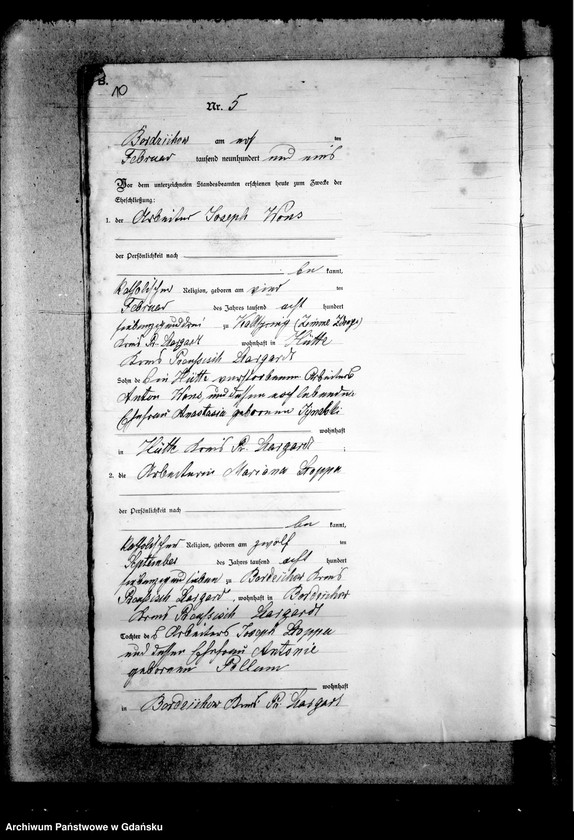 B.
10
Nr. 5
Bordzichow am                 ten
Februar tausend neunhundert und eins
Vor dem unterzeichneten Standesbeamten erschienen heute zum Zwecke der
Eheschließung:
1. der Arbeiter Joseph Wons
der Persönlichkeit nach
be kannt,
katholischer Religion, geboren am vier ten
Februar des Jahres tausend acht hundert
siebenzig und drei zu Kaltspring
Kreis Pr. Stargard wohnhaft in Hütte
Kreis Preußisch Stargardt
Sohn de s in Hütte verstorbenen Arbeiters
Anton Wons, und dessen noch lebenden
Ehefrau Anastasia geborenen
wohnhaft
in Hütte Kreis Pr. Stargardt ;
2. die Arbeiterin Mariana Stoppa
der Persönlichkeit nach
be kannt,
katholischer Religion, geboren am zwölf ten
September des Jahres tausend acht hundert
siebenzig und sieben zu Bordzichow Kreis
Preußisch Stargard, wohnhaft in Bordzichow
Kreis Preußisch Stargardt
Tochter des Arbeiters Joseph Stoppa
und dessen Ehefrau Antonie
geborenen Pellam
wohnhaft
in Bordzichow Kreis Pr. Stargardt
Archiwum Państwowe w Gdańsku